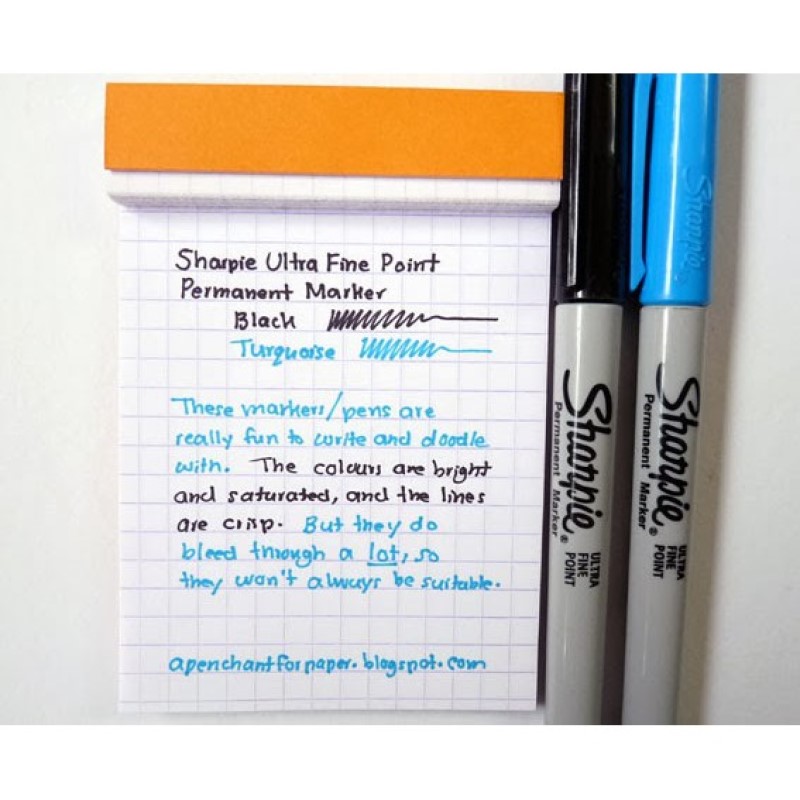 Sharpie Ultra Fine Point
Permanent Marker
Black
Turquoise
These markers/pens are
really fun to write and doodle
with. The colours are bright
and saturated, and the lines
are crisp. But they do
bleed through a lot, so
they won't always be suitable.
apenchantforpaper.blogspot.com
Sharpie
Sharpie®
Permanent Marker
ULTRA
FINE
POINT
Sharpie®
Permanent Marker
ULTRA
FINE
POINT